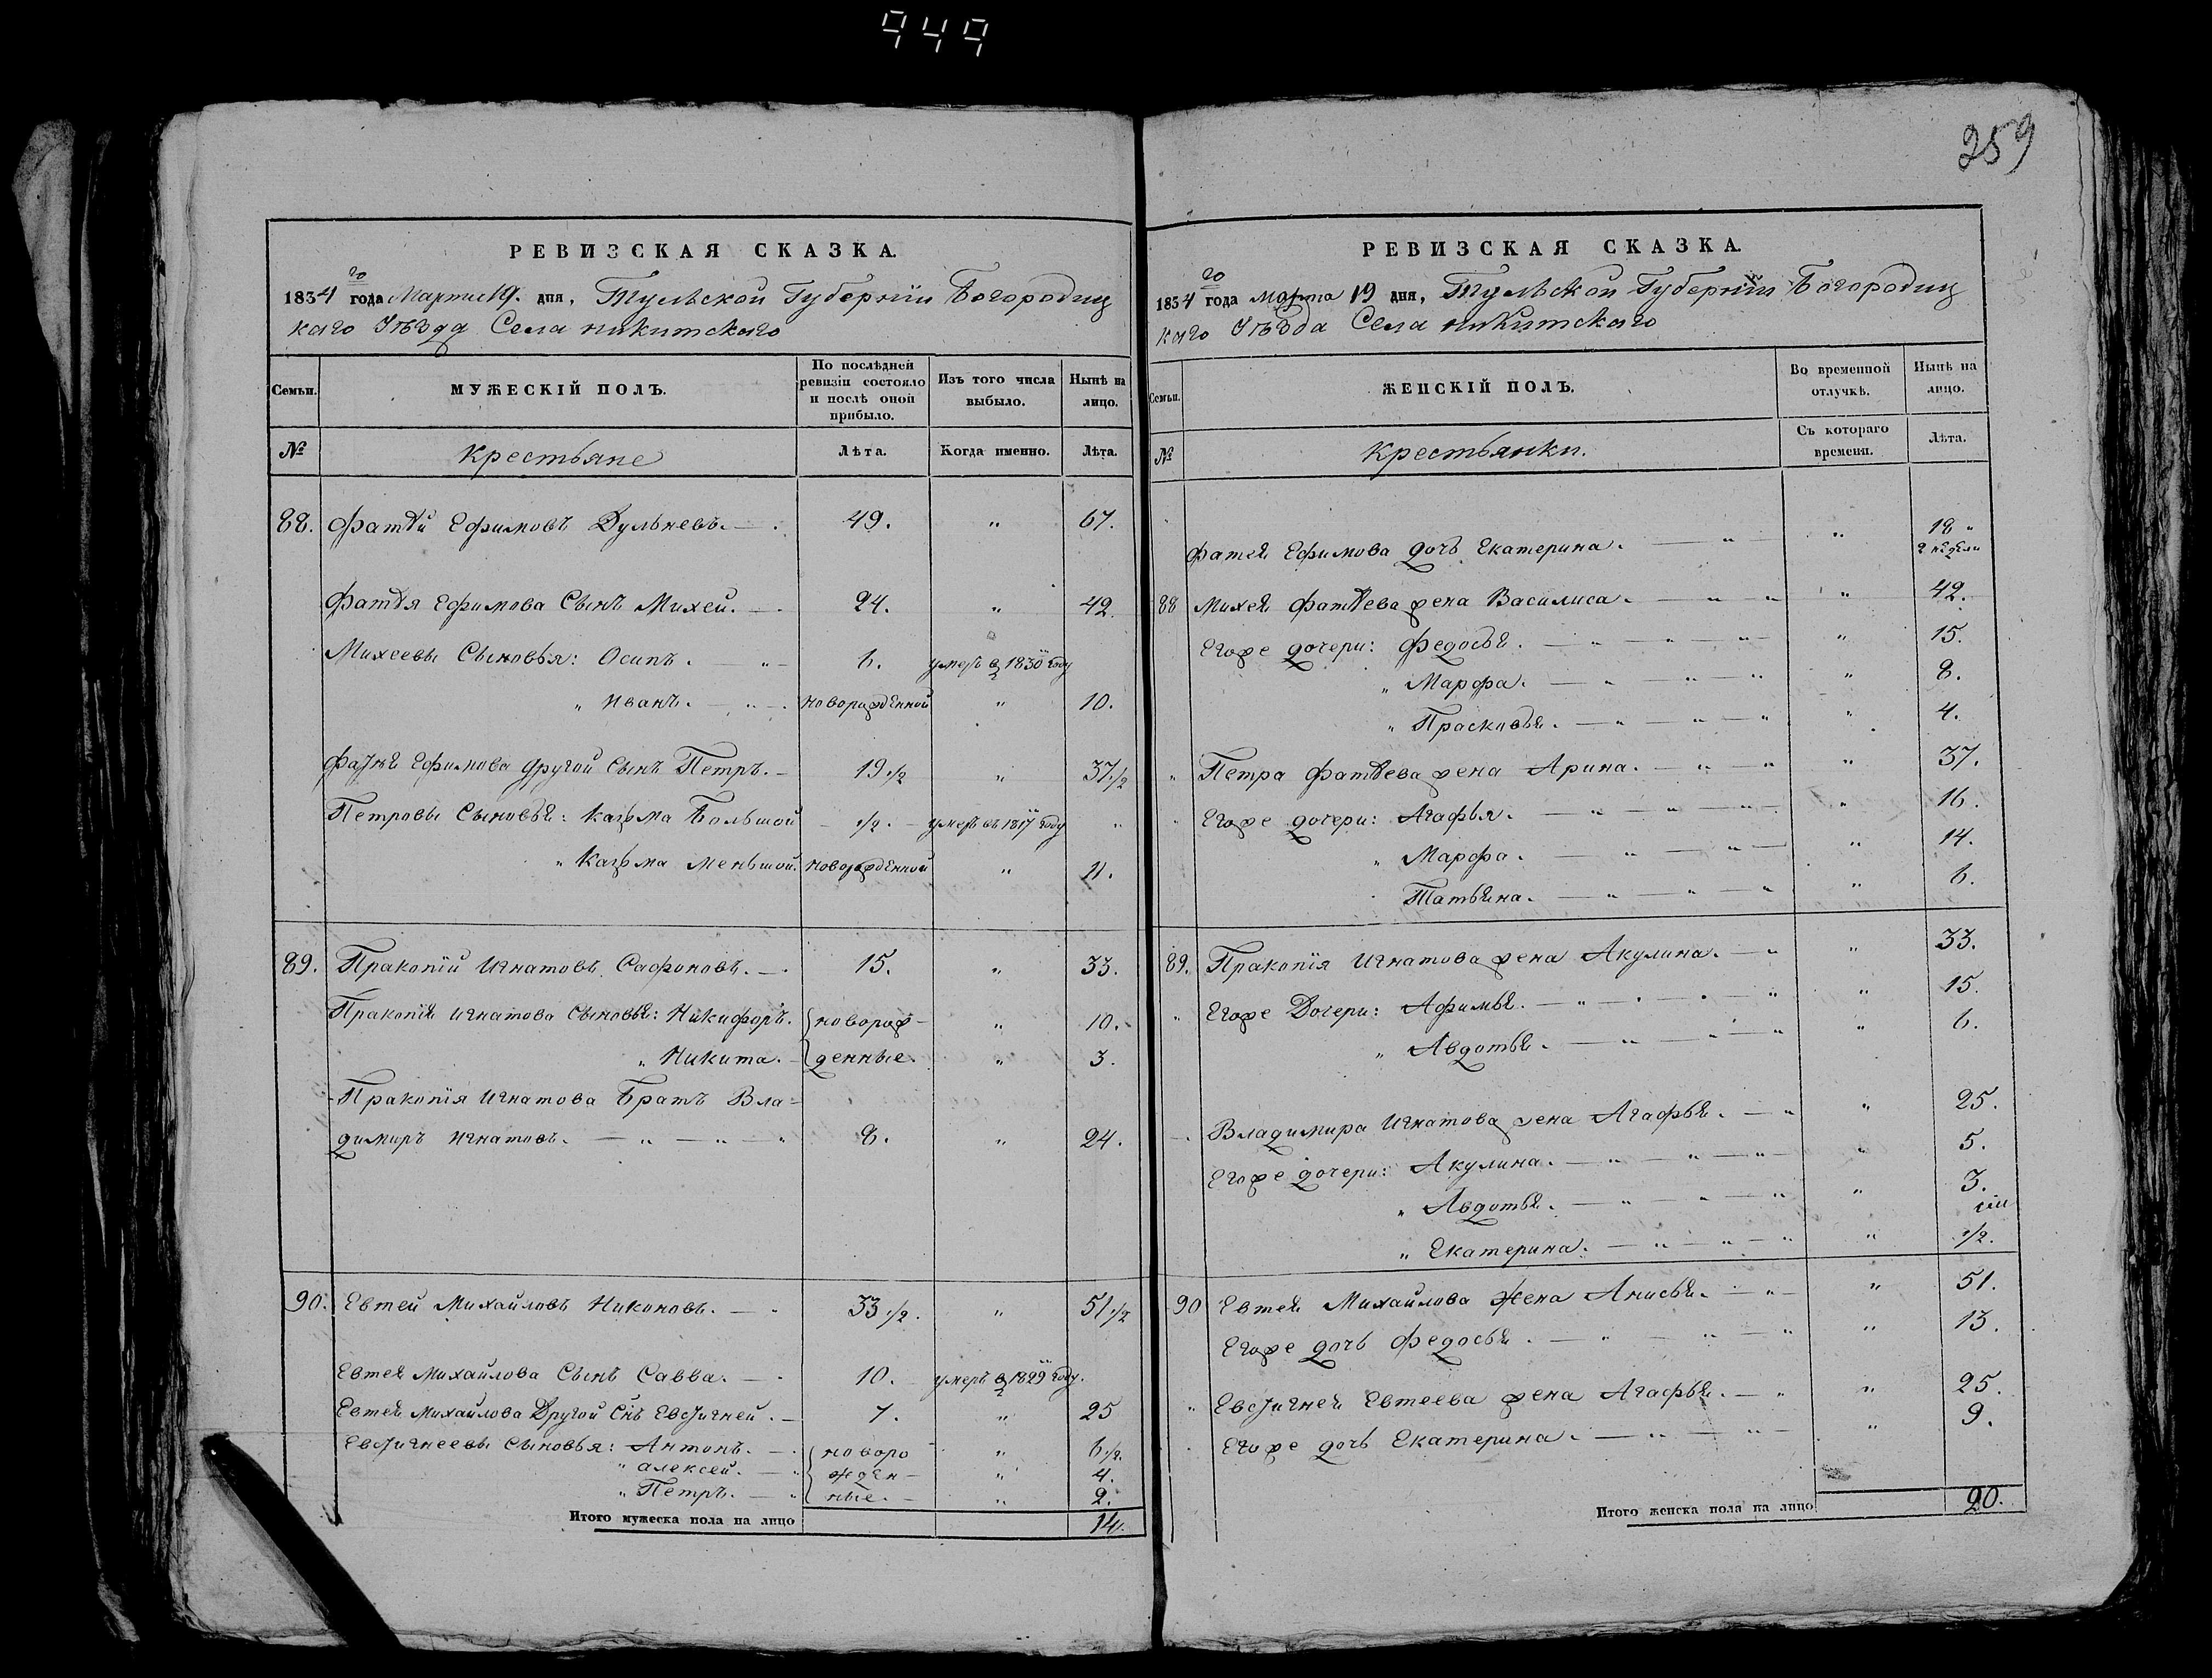 949
259
РЕВИЗСКАЯ СКАЗКА.
1834 го года Марта 19. дня, Тульской Губерніи Богородиц
каго Уѣзда Села никитскаго
Семьи. МУЖЕСКІЙ ПОЛЪ. По послѣдней ревизіи состояло и послѣ оной прибыло. Изъ того числа выбыло. Нынѣ на лицо.
№ Крестьяне Лѣта. Когда именно. Лѣта.
88. Фатѣй Ефимовъ Дульневъ. 49. " 67.
Фатѣя Ефимова Сынъ Михей. 24. " 42.
Михеевы Сыновья: Осипъ. 6. умеръ в 1830 году
" Иванъ. новорожденной " 10.
Фатѣя Ефимова другой сынъ Петръ. 19 1/2 " 37 1/2
Петровы Сыновья: Казьма Большой 1/2. умеръ въ 1817 году "
" Казьма меньшой. новорожденной " 11.
89. Пракопій Игнатовъ Сафоновъ. 15. " 33.
Пракопія Игнатова Сыновья: Никифоръ. новорож- " 10.
" Никита. денные. " 3.
Пракопія Игнатова Братъ Вла-
димиръ Игнатовъ. 8. " 24.
90. Евтей Михайловъ Никоновъ. 33 1/2. " 51 1/2
Евтея Михайлова Сынъ Савва. 10. умеръ в 1829 году.
Евтея Михайлова Другой Снъ Евстигней. 7. " 25
Евстигнеевы сыновья: Антонъ. новоро " 6 1/2.
" алексей. жден- " 4.
" Петръ. ные. " 2.
Итого мужеска пола на лицо 14.
РЕВИЗСКАЯ СКАЗКА.
1834 го года марта 19 дня, Тульской Губерніи Богородиц
каго Уѣзда Села никитскаго
Семьи. ЖЕНСКІЙ ПОЛЪ. Во временной отлучкѣ. Нынѣ на лицо.
№ Крестьянки. Съ котораго времени. Лѣта.
Фатея Ефимова дочь Екатерина. " 18 "
2 недели
88 Михея Фатѣева жена Василиса. " 42.
Егоже дочери: Федосья. " 15.
" Марфа. " 8.
" Прасковья. " 4.
" Петра Фатѣева жена Арина. " 37.
" Егоже дочери: Агафья. " 16.
" Марфа. " 14.
Татьяна. " 6.
89. Пракопія Игнатова жена Акулина. " 33.
" Егоже Дочери: Афимья. " 15.
" Авдотья. " 6.
Владимира Игнатова жена Агафья. " 25.
Егоже дочери: Акулина. " 5.
" Авдотья. " 3.
" Екатерина. " 1/2.
90 Евтея Михайлова жена Анисья. " 51.
Егоже дочь Федосья. " 13.
" Евстигнея Евтеева жена Агафья. " 25.
Егоже дочь Екатерина. " 9.
Итого женска пола на лицо 20.